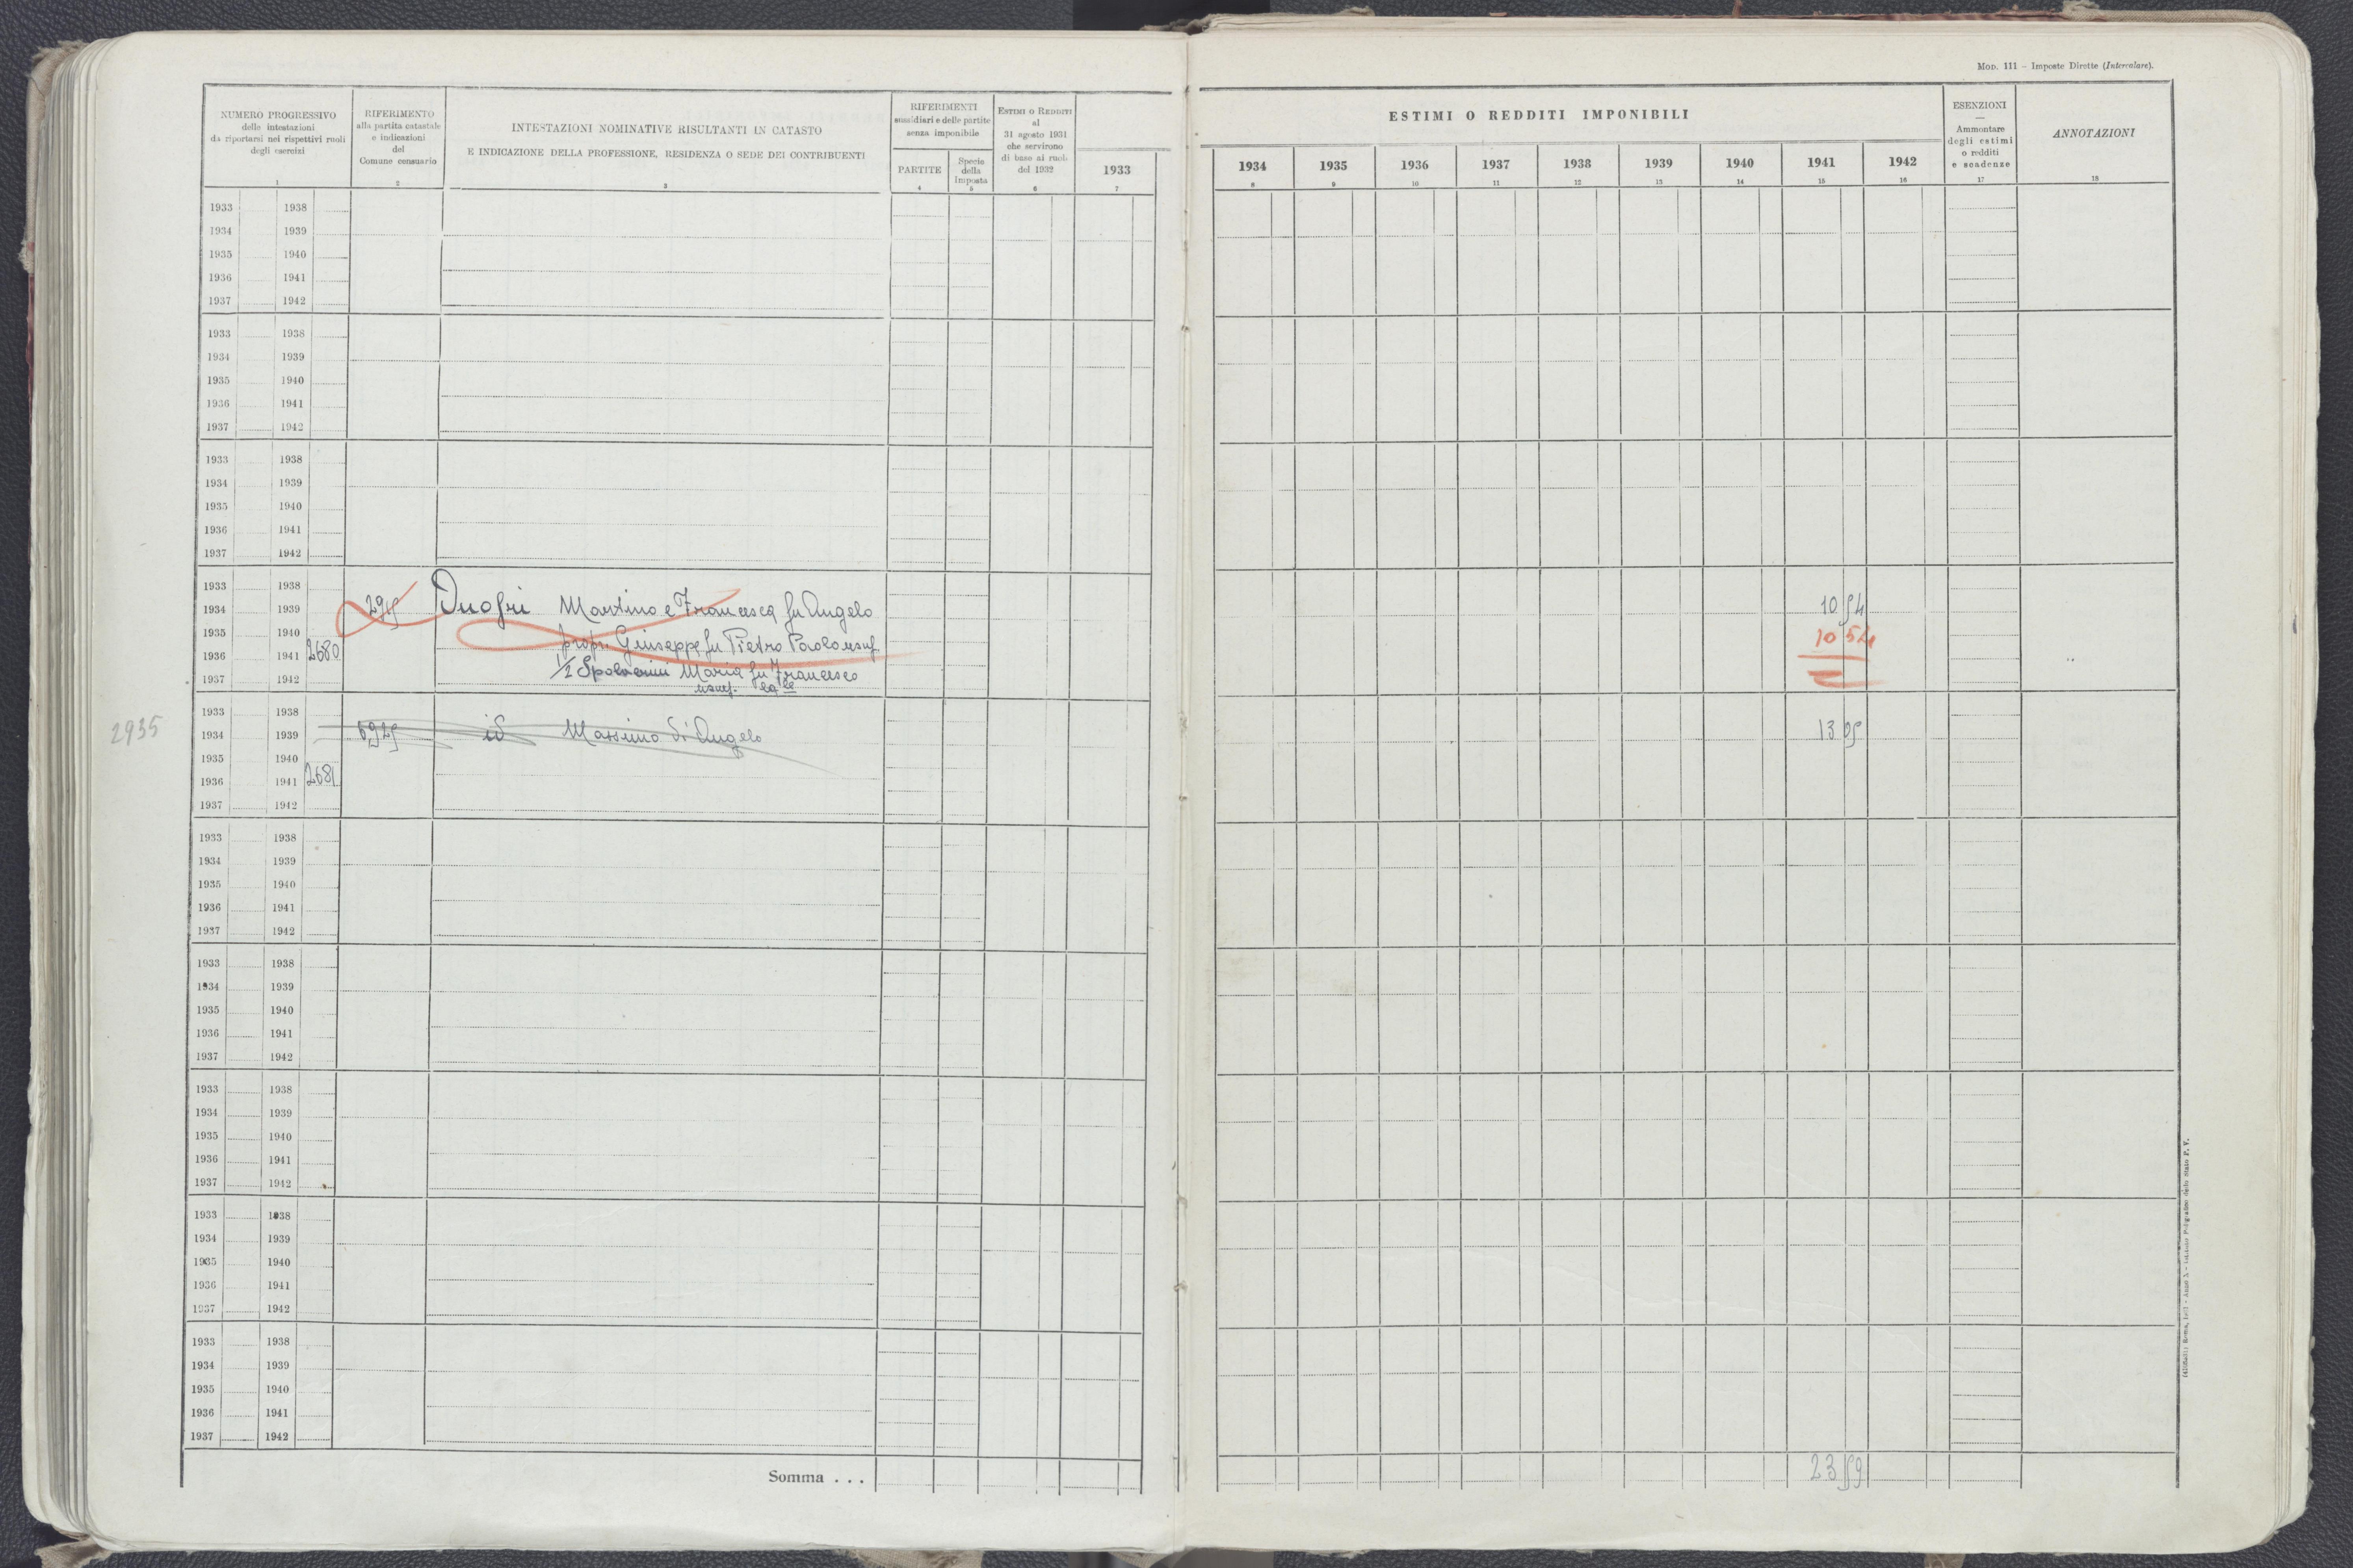 Mod. 111 – Imposte Dirette (Intercalare).
NUMERO PROGRESSIVO
delle intestazioni
da riportarsi nei rispettivi ruoli
degli esercizi
1
RIFERIMENTO
alla partita catastale
e indicazioni
del
Comune censuario
2
INTESTAZIONI NOMINATIVE RISULTANTI IN CATASTO
E INDICAZIONE DELLA PROFESSIONE, RESIDENZA O SEDE DEI CONTRIBUENTI
3
RIFERIMENTI
sussidiari e delle partite
senza imponibile
PARTITE
4
Specie
della
imposta
5
Estimi o Redditi
al
31 agosto 1931
che servirono
di base ai ruoli
del 1932
6
1933
7
ESTIMI O REDDITI IMPONIBILI
1934 1935 1936 1937 1938 1939 1940 1941 1942
8 9 10 11 12 13 14 15 16
ESENZIONI
—
Ammontare
degli estimi
o redditi
e scadenze
17
ANNOTAZIONI
18
1933 1938
1934 1939
1935 1940
1936 1941
1937 1942
1933 1938
1934 1939
1935 1940
1936 1941
1937 1942
1933 1938
1934 1939
1935 1940
1936 1941
1937 1942
1933 1938
1934 1939 295 Onofri Martino e Francesca fu Angelo 10 54
1935 1940 propr. Giuseppe fu Pietro Paolo usuf. 10 54
1936 1941 2680
1/2 Spolverini Maria fu Francesco
1937 1942 usuf.
1933 1938
2935 1934 1939 6925 id Massimo di Angelo 13 05
1935 1940
1936 1941 2681
1937 1942
1933 1938
1934 1939
1935 1940
1936 1941
1937 1942
1933 1938
1934 1939
1935 1940
1936 1941
1937 1942
1933 1938
1934 1939
1935 1940
1936 1941
1937 1942
1933 1938
1934 1939
1935 1940
1936 1941
1937 1942
1933 1938
1934 1939
1935 1940
1936 1941
1937 1942
Somma . . . 23 59